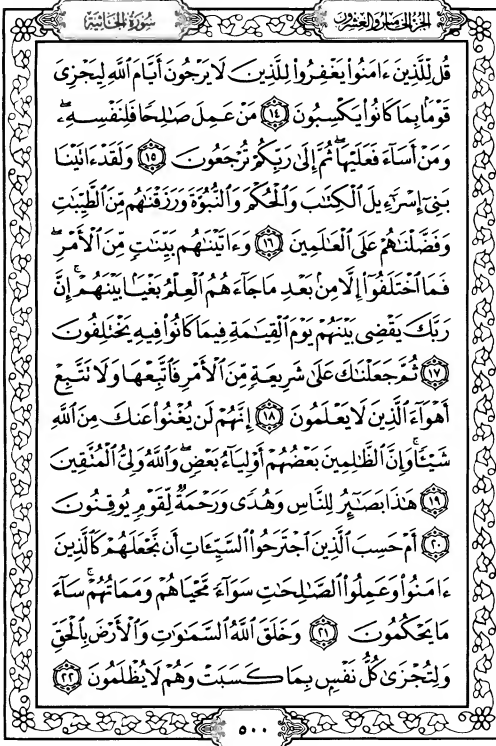 سُورَةُ الجَاثِيَةِ الجُزْءُ الخَامِسُ وَالعِشْرُونَ
قُل لِّلَّذِينَ ءَامَنُوا۟ يَغْفِرُوا۟ لِلَّذِينَ لَا يَرْجُونَ أَيَّامَ ٱللَّهِ لِيَجْزِىَ
قَوْمًۢا بِمَا كَانُوا۟ يَكْسِبُونَ ١٤ مَنْ عَمِلَ صَٰلِحًا فَلِنَفْسِهِۦ ۖ
وَمَنْ أَسَآءَ فَعَلَيْهَا ۖ ثُمَّ إِلَىٰ رَبِّكُمْ تُرْجَعُونَ ١٥ وَلَقَدْ ءَاتَيْنَا
بَنِىٓ إِسْرَٰٓءِيلَ ٱلْكِتَٰبَ وَٱلْحُكْمَ وَٱلنُّبُوَّةَ وَرَزَقْنَٰهُم مِّنَ ٱلطَّيِّبَٰتِ
وَفَضَّلْنَٰهُمْ عَلَى ٱلْعَٰلَمِينَ ١٦ وَءَاتَيْنَٰهُم بَيِّنَٰتٍ مِّنَ ٱلْأَمْرِ ۖ
فَمَا ٱخْتَلَفُوٓا۟ إِلَّا مِنۢ بَعْدِ مَا جَآءَهُمُ ٱلْعِلْمُ بَغْيًۢا بَيْنَهُمْ ۚ إِنَّ
رَبَّكَ يَقْضِى بَيْنَهُمْ يَوْمَ ٱلْقِيَٰمَةِ فِيمَا كَانُوا۟ فِيهِ يَخْتَلِفُونَ
١٧ ثُمَّ جَعَلْنَٰكَ عَلَىٰ شَرِيعَةٍ مِّنَ ٱلْأَمْرِ فَٱتَّبِعْهَا وَلَا تَتَّبِعْ
أَهْوَآءَ ٱلَّذِينَ لَا يَعْلَمُونَ ١٨ إِنَّهُمْ لَن يُغْنُوا۟ عَنكَ مِنَ ٱللَّهِ
شَيْـًٔا ۚ وَإِنَّ ٱلظَّٰلِمِينَ بَعْضُهُمْ أَوْلِيَآءُ بَعْضٍ ۖ وَٱللَّهُ وَلِىُّ ٱلْمُتَّقِينَ
١٩ هَٰذَا بَصَٰٓئِرُ لِلنَّاسِ وَهُدًى وَرَحْمَةٌ لِّقَوْمٍ يُوقِنُونَ
٢٠ أَمْ حَسِبَ ٱلَّذِينَ ٱجْتَرَحُوا۟ ٱلسَّيِّـَٔاتِ أَن نَّجْعَلَهُمْ كَٱلَّذِينَ
ءَامَنُوا۟ وَعَمِلُوا۟ ٱلصَّٰلِحَٰتِ سَوَآءً مَّحْيَاهُمْ وَمَمَاتُهُمْ ۚ سَآءَ
مَا يَحْكُمُونَ ٢١ وَخَلَقَ ٱللَّهُ ٱلسَّمَٰوَٰتِ وَٱلْأَرْضَ بِٱلْحَقِّ
وَلِتُجْزَىٰ كُلُّ نَفْسٍۭ بِمَا كَسَبَتْ وَهُمْ لَا يُظْلَمُونَ ٢٢
٥٠٠